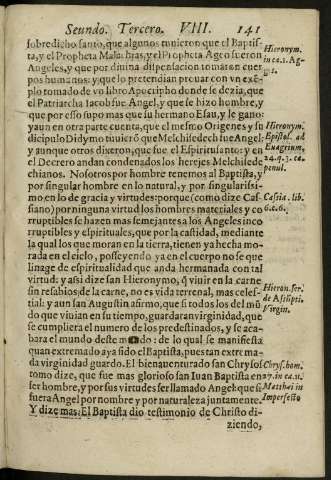 Seundo. Tercero. VIII. 141
sobredicho santo, que algunos tuuieron que el Baptis-
ta, y el Propheta Malachias, y el Propheta Ageo fueron
Angeles, y que por diuina dispensacion tomaron cuer
pos humanos: y que lo pretendian prouar con vn exē-
plo tomado de vn libro Apocripho donde se dezia, que
el Patriarcha Iacob fue Angel, y que se hizo hombre, y
que por esso supo mas que su hermano Esau, y le gano:
y aun en otra parte cuenta, que el mesmo Origenes y su
dicipulo Didymo tuuierō que Melchisedech fue Angel,
y aunque otros dixeron, que fue el Spiritu santo: y en
el Decreto andan condenados los herejes Melchisede
chianos. Nosotros por hombre tenemos al Baptista, y
por singular hombre en lo natural, y por singularissi-
mo en lo de gracia y virtudes: porque (como dize Cas-
siano) por ninguna virtud los hombres materiales y co
rruptibles se hazen mas semejantes a los Angeles inco
rruptibles y espirituales, que por la castidad, mediante
la qual los que moran en la tierra, tienen ya hecha mo-
rada en el cielo, posseyendo ya en el cuerpo no se que
linage de espiritualidad que anda hermanada con tal
virtud: y assi dize san Hieronymo, q̄ viuir en la carne
sin resabios de la carne, no es vida terrenal, mas celes-
tial: y aun san Augustin afirmo, que si todos los del mū
do que viuian en su tiempo, guardaran virginidad, que
se cumpliera el numero de los predestinados, y se aca-
bara el mundo deste modo: de lo qual se manifiesta
quan extremado aya sido el Baptista, pues tan extrema-
da virginidad guardo. El bienauenturado san Chrysos
tomo dize, que fue mas glorioso san Iuan Baptista en
ser hombre, y por sus virtudes ser llamado Angel: que si
fuera Angel por nombre y por naturaleza juntamente.
Y dize mas: El Baptista dio testimonio de Christo di-
ziendo,
Hieronym.
in ca. 1. Ag-
Hieronym.
Epistol. ad
Euagrium,
24. q. 3. ca.
penul.
Cassia. lib.
6. c. 6.
Hieron. ser.
de Assūpti.
Virgin.
Chrys. hom.
27. in ca. 11.
Matthæi in
Imperfecto